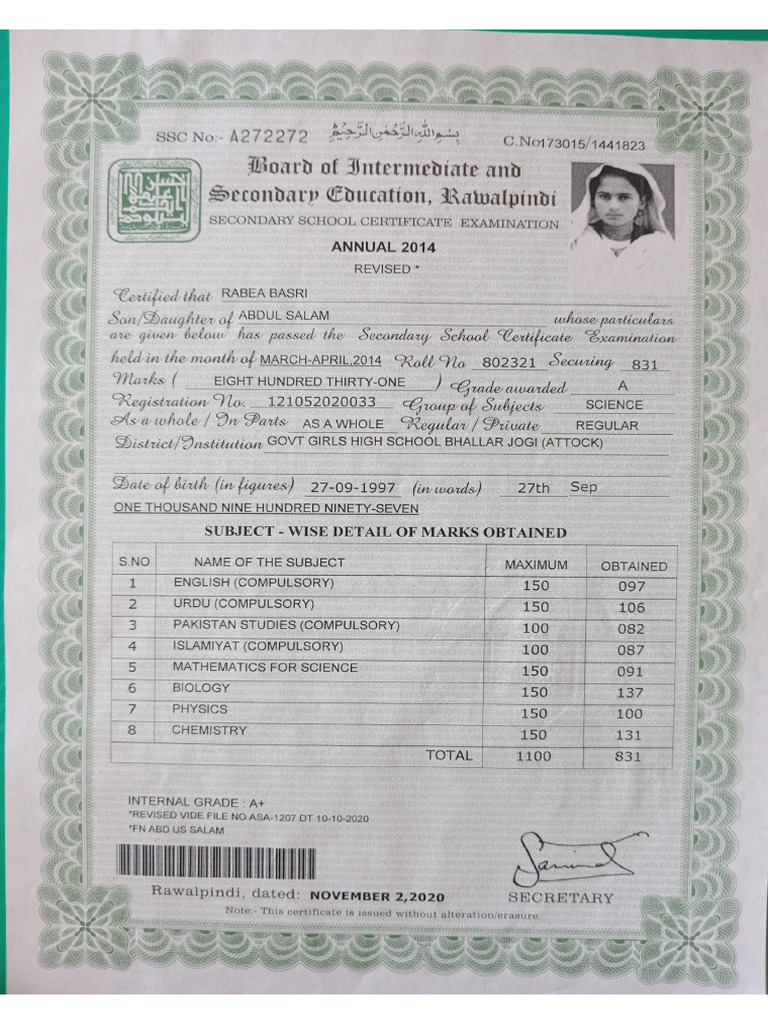 SSC No:- A272272 بِسْمِ اللّٰهِ الرَّحْمٰنِ الرَّحِيْمِ C.No173015/1441823
Board of Intermediate and
Secondary Education, Rawalpindi
SECONDARY SCHOOL CERTIFICATE EXAMINATION
ANNUAL 2014
REVISED *
Certified that RABEA BASRI
Son/Daughter of ABDUL SALAM whose particulars
are given below has passed the Secondary School Certificate Examination
held in the month of MARCH-APRIL,2014 Roll No 802321 Securing 831
Marks ( EIGHT HUNDRED THIRTY-ONE ) Grade awarded A
Registration No. 121052020033 Group of Subjects SCIENCE
As a whole / In Parts AS A WHOLE Regular / Private REGULAR
District/Institution GOVT GIRLS HIGH SCHOOL BHALLAR JOGI (ATTOCK)
Date of birth (in figures) 27-09-1997 (in words) 27th Sep
ONE THOUSAND NINE HUNDRED NINETY-SEVEN
SUBJECT - WISE DETAIL OF MARKS OBTAINED
S.NO NAME OF THE SUBJECT MAXIMUM OBTAINED
1 ENGLISH (COMPULSORY) 150 097
2 URDU (COMPULSORY) 150 106
3 PAKISTAN STUDIES (COMPULSORY) 100 082
4 ISLAMIYAT (COMPULSORY) 100 087
5 MATHEMATICS FOR SCIENCE 150 091
6 BIOLOGY 150 137
7 PHYSICS 150 100
8 CHEMISTRY 150 131
TOTAL 1100 831
INTERNAL GRADE : A+
*REVISED VIDE FILE NO ASA-1207 DT 10-10-2020
*FN ABD US SALAM
Rawalpindi, dated: NOVEMBER 2,2020 SECRETARY
Note:- This certificate is issued without alteration/erasure.